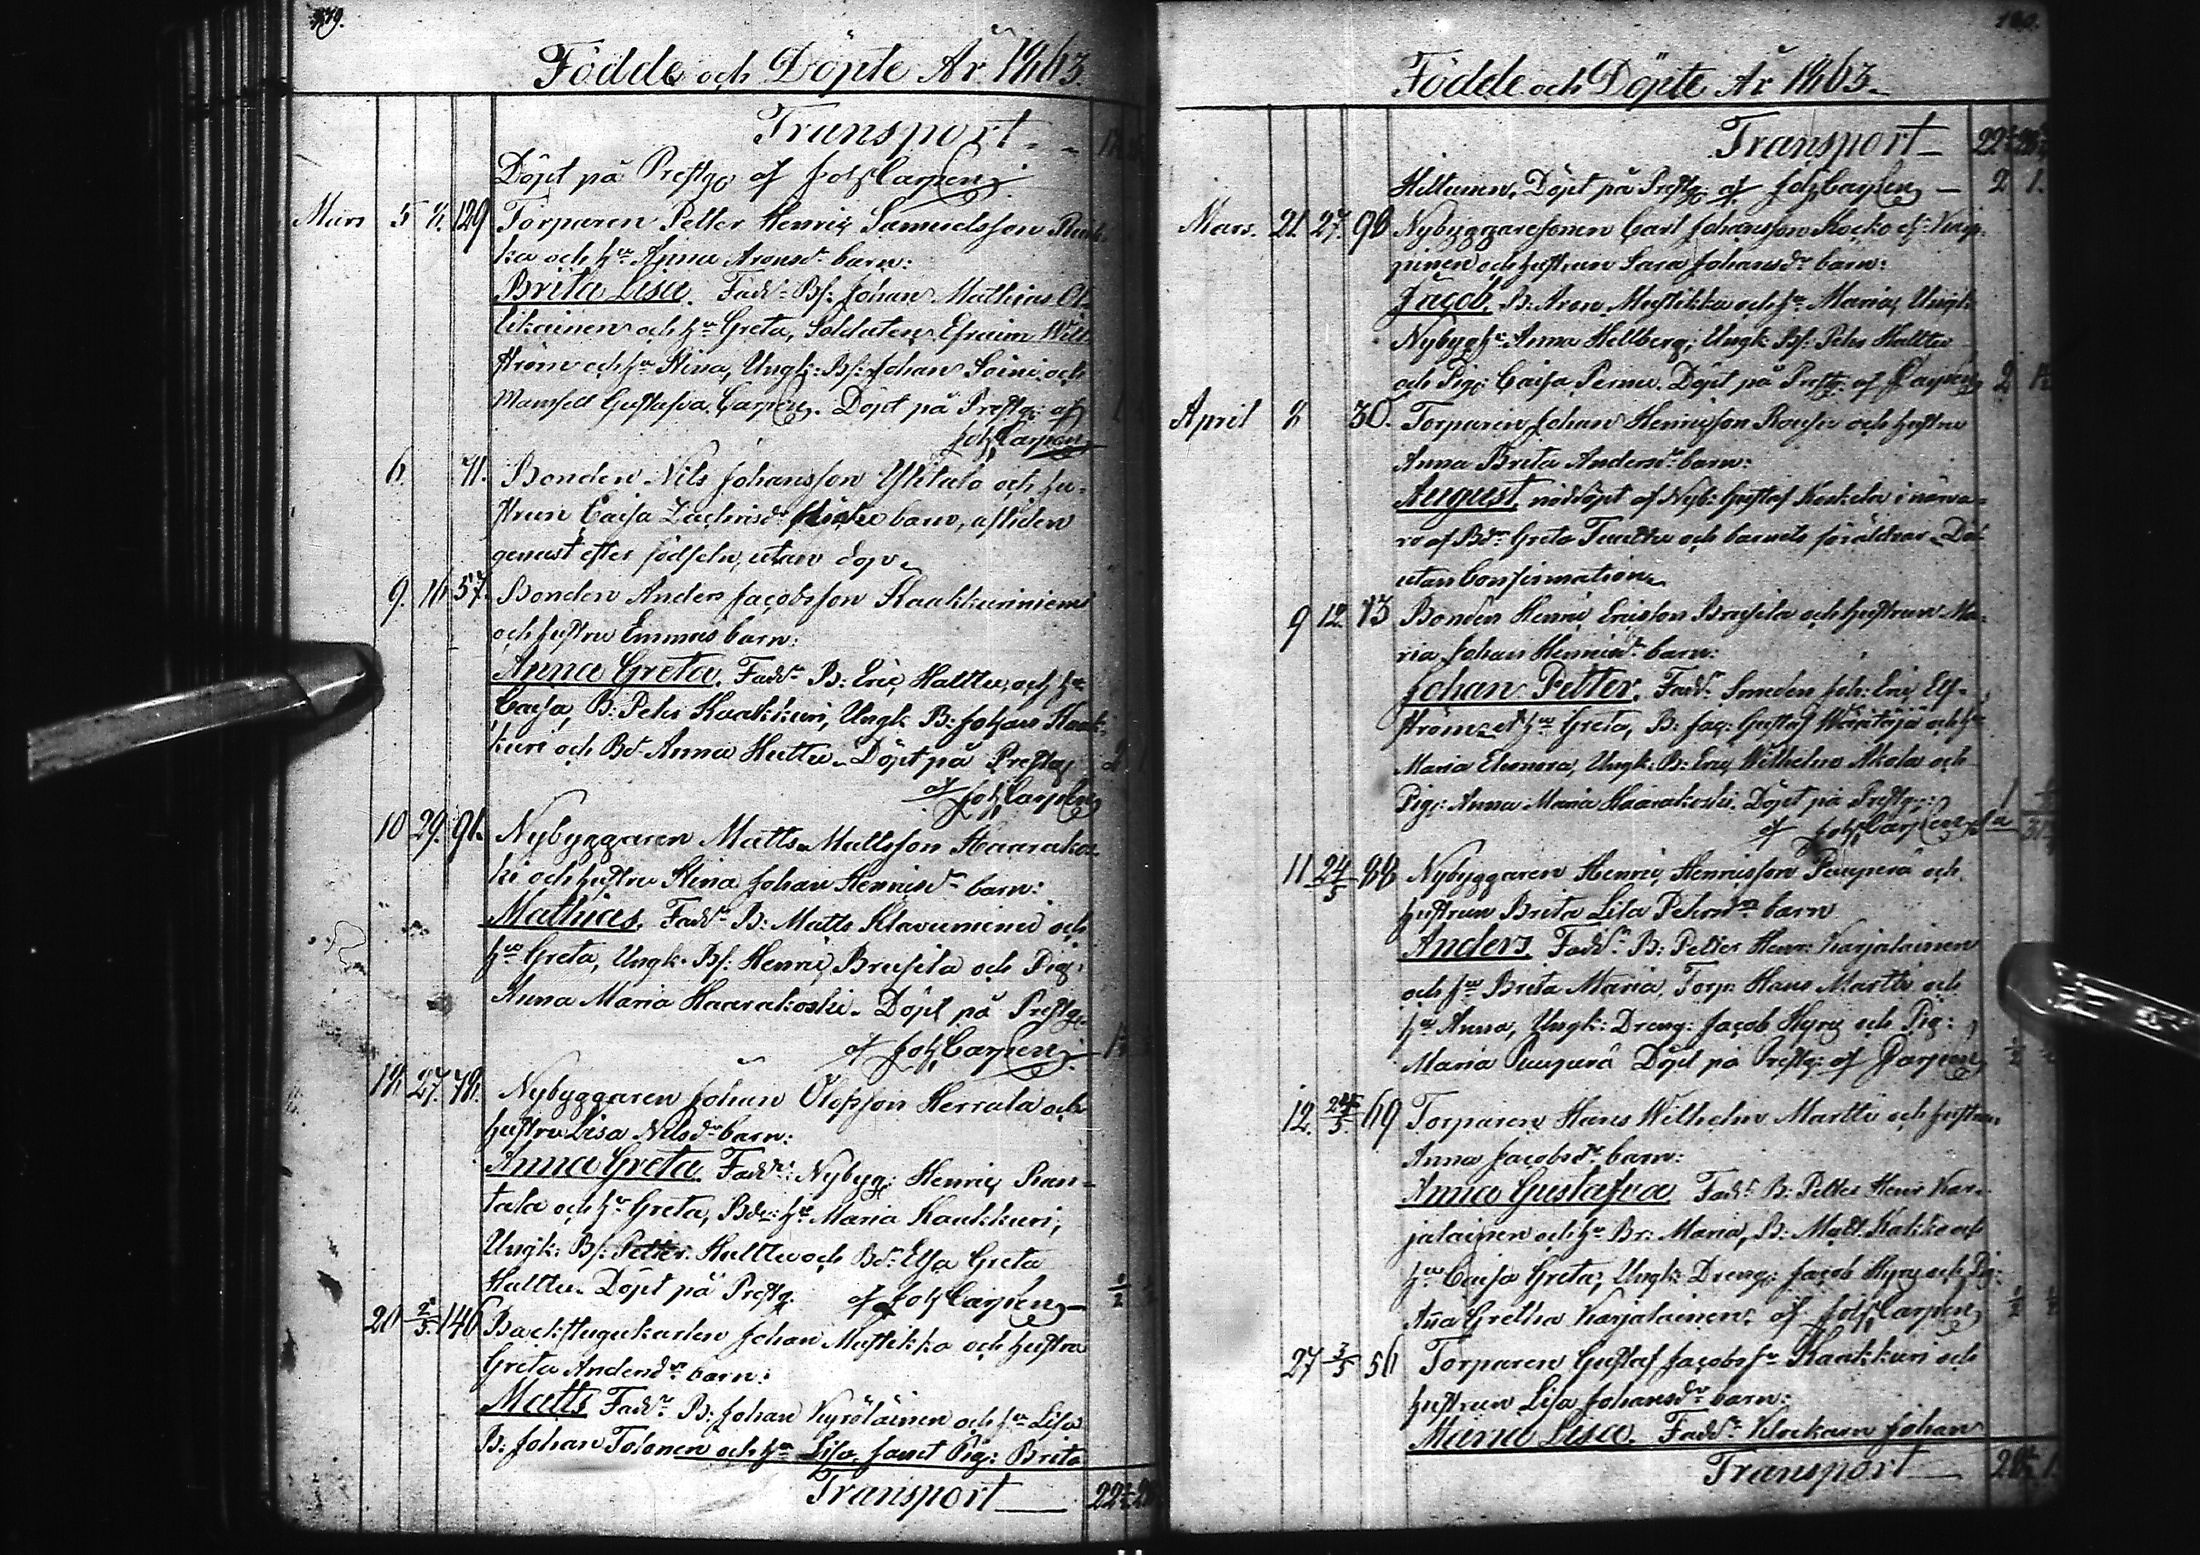 379.
Födde och Döpte År 1863.
Transport
Döpt på Prestg: af Joh Carpen
Mars 5 8. 129 Torparen Petter Henric Samuelsson
ka och h:u Anna Aronsd:r barn:
Brita Lisa. Fadd:r Bs: Johan Mathias
likainen och h:u Greta, Soldaten Efraim Will-
ström och h:u Stina, Ungk: Bs: Johan Soini och
Mamsell Gustafva Carpen. Döpt på Prestg: af
Joh Carpen
6. 71. Bonden Nils Johansson Ylitalo och hu-
strun Caisa Zachrisd:r barn, afliden
genast efter födseln, utan dop.
9. 16 57. Bonden Anders Jacobsson Kaakkuriniemi
och hustru Emmas barn:
Anna Greta. Fadd:r B: Eric Halttu och h:u
Caisa, B: Pehr Kaakkuri, Ungk: B: Johan Kaak-
kuri och Bd:r Anna Huttu. Döpt på Prestg
af Joh Carpen
10 29. 91. Nybyggaren Matts Mattsson Haarakos-
ki och hustru Stina Johan Henricsd:r barn:
Mathias. Fadd:r B: Matts Klavuniemi och
h:u Greta, Ungk: Bs: Henric Brusila och Pig:
Anna Maria Haarakoski. Döpt på Prestg
af Joh Carpen
18. 27. 78. Nybyggaren Johan Olofsson Herrala och
hustru Lisa Nilsd:r barn:
Anna Greta. Fadd:r: Nybyg: Henric Ran-
tala och h:u Greta, Bde: h:u Maria Kaakkuri,
Ungk: Bs: Petter Halttu och Bd:r Elsa Greta
Halttu. Döpt på Prestg. af Joh Carpen ½
20 2/5. 146 Backstugukarlen Johan Mustikka och hustru
Greta Andersd:r barn:
Matts Fadd:r B: Johan Kyröläinen och h:u Lisa
B: Johan Tolonen och h:u Lisa samt Pig: Brita
Transport 22½
Födde och Döpte År 1863.
Transport 22½
Hiltunen. Döpt på Prestg: af Joh Carpen 2 1.
Mars. 21. 27. 98 Nybyggaresonen Carl Johansson
och hustrun Sara Johansd:r barn:
Jacob. B: Aron Mustikka och h:u Maria, Ungk:
Nybyg h:u Anna Hellberg, Ungk: Bs: Pehr Halttu
och Pig: Caisa Perna. Döpt på Prestg: af Carpen 2
April 8 30. Torparen Johan Henricsson och hustru
Anna Brita Andersd:r barn:
August, nöddöpt af Nyb: Gustaf i närva-
ro af Bd:r Greta och barnets föräldrar. Död
utan Confirmation.
9 12. 73 Bonden Henric Ericsson Brusila och hustrun Ma-
ria Johan Henricsd:r barn:
Johan Petter. Fadd:r Smeden Joh: Eric Elf-
ström och h:u Greta, B: Jac: Gustaf Määttäjä och h:u
Maria Eleonora, Ungk: B: Eric Wilhelm Akola och
Pig: Anna Maria Haarakoski. Döpt på Prestg: 1
af Joh Carpen
11 24/5 88 Nybyggaren Henric Henricsson Pauperä och
hustrun Brita Lisa Pehrsd:r barn
Anders. Fadd:r B: Petter Henr: Karjalainen
och h:u Brita Maria, Torp: Hans Martti och
h:u Anna, Ungk: Dreng: Jacob Kyrö och Pig:
Maria Pauperä Döpt på Prestg: af Carpen ½
12. 24/5. 69 Torparen Hans Wilhelm Martti och hustrun
Anna Jacobsd:r barn:
Anna Gustafva Fadd:r B: Petter Henr Kar-
jalainen och h:u Br: Maria, B: Matt: Kokko och
h:u Caisa Greta, Ungk: Dreng: Jacob Kyrö och Pig:
Ana Gretha Karjalainen, af Joh Carpen ½
27 3/5 56 Torparen Gustaf Jacobss:n Kaakkuri och
hustrun Lisa Johansd:r barn:
Maria Lisa. Fadd:r Klockarn Johan
Transport